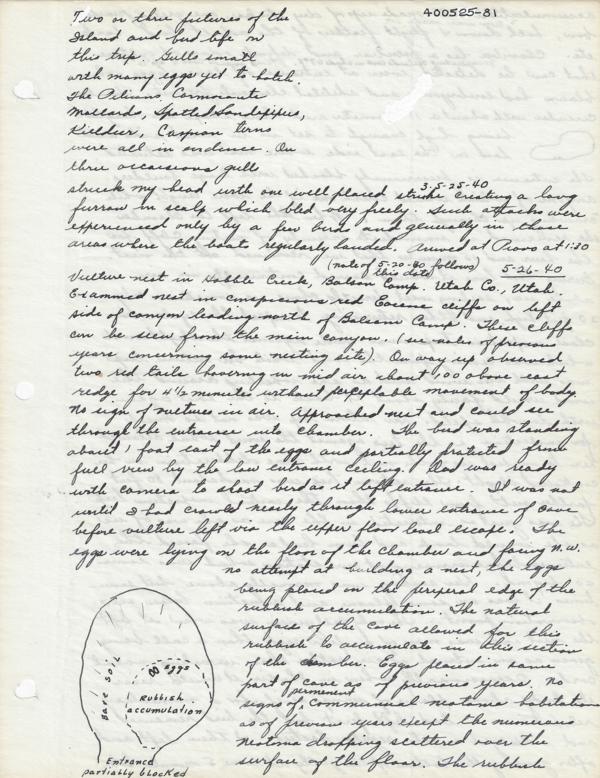 400525-81
Two or three pictures of the
Island and bird life on
this trip. Gulls small
with many eggs yet to hatch.
The Pelicans, Cormorants
Mallards, Spotted Sandpipers,
Killdeer, Caspian terns
were all in evidence. On
three occasions gull
3:5-25-40
struck my head with one well placed stroke creating a long
furrow in scalp which bled very freely. Such attacks were
experienced only by a few birds and generally in those
areas where the boats regularly landed. Arrived at Provo at 1:30
(note of 5-20-80 follows this date) 5-26-40
Vulture nest in Hobble Creek, Balsam Camp. Utah Co., Utah.
Examined nest in conspicuous red Eocene cliffs on left
side of canyon leading north of Balsam Camp. These cliffs
can be seen from the main canyon. (see notes of previous
years concerning same nesting site). On way up observed
two red tails hovering in mid air about 100 above east
redge for 4 1/2 minutes without perceptable movement of body.
No sign of vultures in air. Approached nest and could see
through the entrance into chamber. The bird was standing
about 1 foot east of the eggs and partially protected from
full view by the low entrance ceiling. Dad was ready
with camera to shoot bird as it left entrance. It was not
until I had crawled nearly through lower entrance of cave
before vulture left via the upper floor level escape. The
eggs were lying on the floor of the chamber and facing N.W.
no attempt at building a nest, the eggs
being placed on the periperal edge of the
rubbish accumulation. The natural
surface of the cave allowed for this
rubbish to accumulate in this section
of the chamber. Eggs placed in same
part of cave as of previous years. No
signs of permenent communual neotoma habitation
as of previous years except the numerous
neotoma dropping scattered over the
surface of the floor. The rubbish
Bare soil
Eggs
Rubbish
accumulation
Entrance
partially blocked